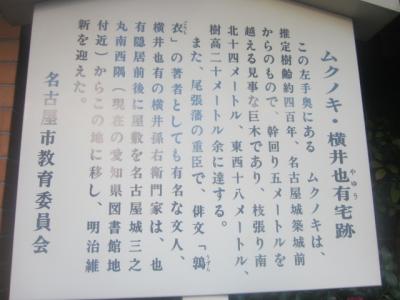 ムクノキ・横井也有宅跡
やゆう
この左手奥にある ムクノキは、
推定樹齢約四百年、名古屋城築城前
からのもので、幹回り五メートルを
越える見事な巨木であり、枝張り南
北十四メートル、東西十八メートル、
樹高二十メートル余に達する。
また、尾張藩の重臣で、俳文「鶉
うずら
衣」の著者としても有名な文人、
ごろも
横井也有の横井孫右衛門家は、也
有隠居前後に屋敷を名古屋城三之
丸南西隅（現在の愛知県図書館地
付近）からこの地に移し、明治維
新を迎えた。
名古屋市教育委員会